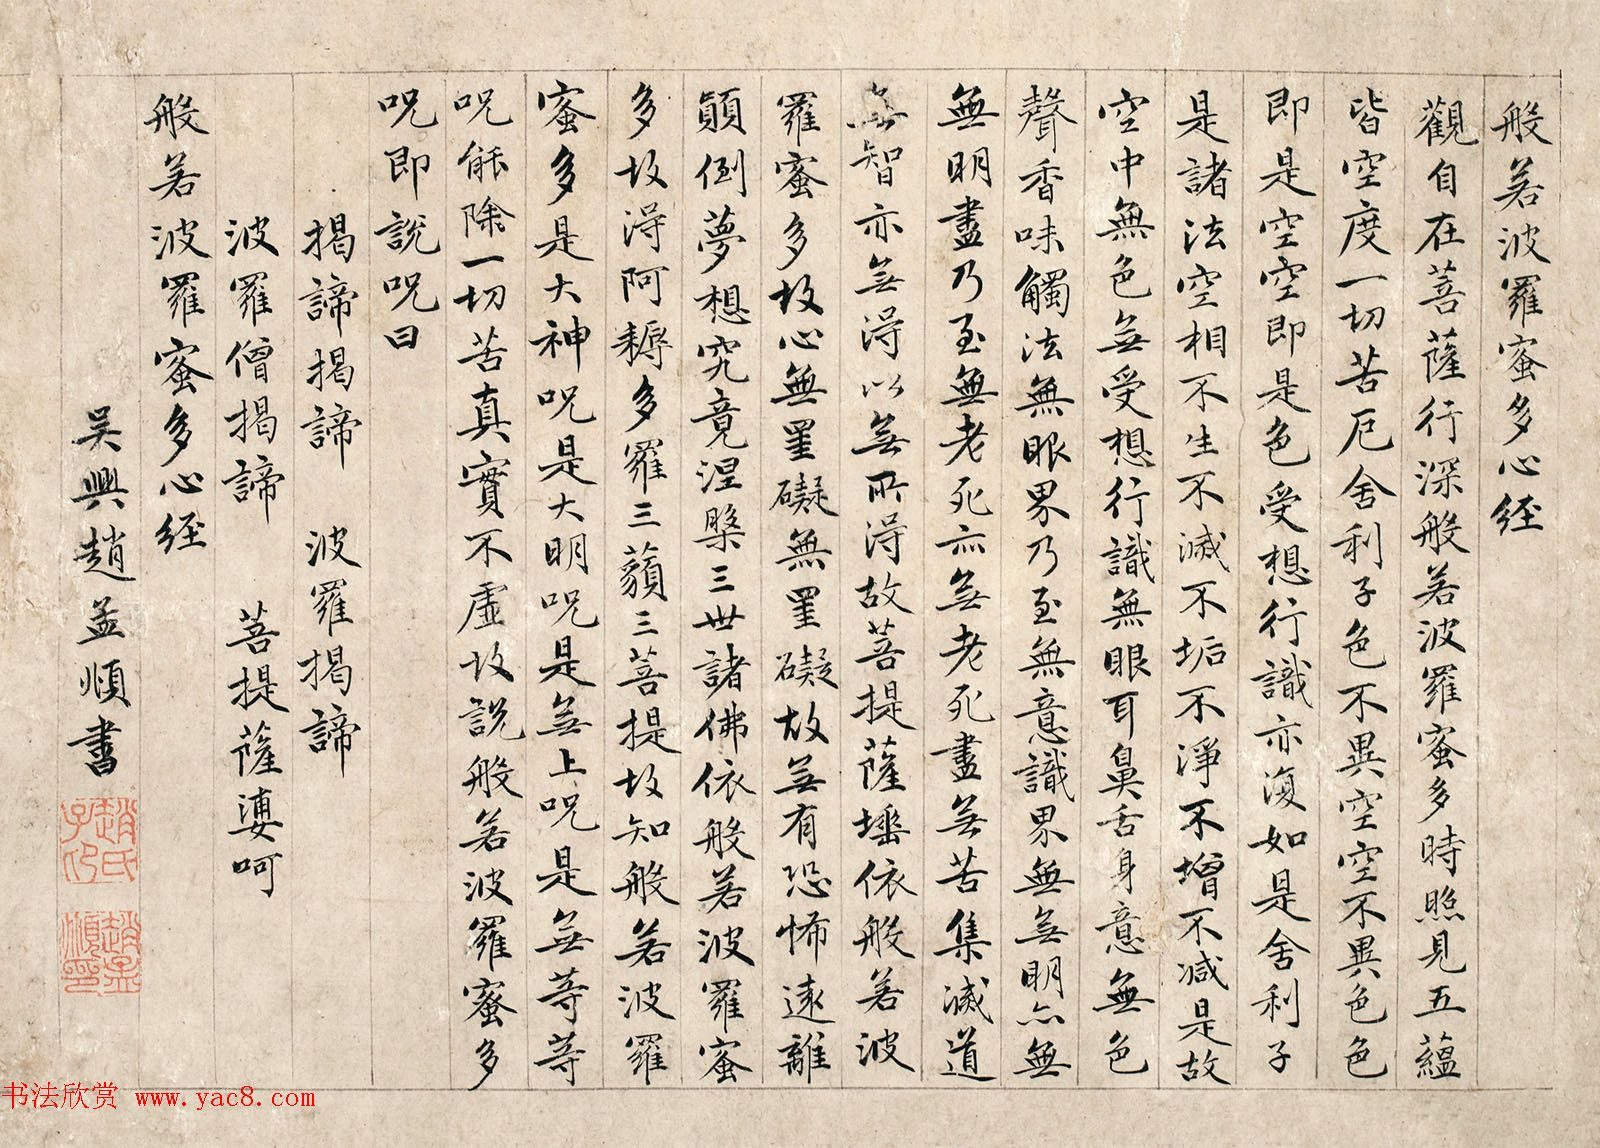 般若波羅蜜多心経
觀自在菩薩行深般若波羅蜜多時照見五蘊
皆空度一切苦厄舍利子色不異空空不異色色
即是空空即是色受想行識亦復如是舍利子
是諸法空相不生不滅不垢不淨不增不減是故
空中無色無受想行識無眼耳鼻舌身意無色
聲香味觸法無眼界乃至無意識界無無明亦無
無明盡乃至無老死亦無老死盡無苦集滅道
無智亦無得以無所得故菩提薩埵依般若波
羅蜜多故心無罣礙無罣礙故無有恐怖遠離
顛倒夢想究竟涅槃三世諸佛依般若波羅蜜
多故得阿耨多羅三藐三菩提故知般若波羅
蜜多是大神呪是大明呪是無上呪是無等等
呪能除一切苦真實不虛故說般若波羅蜜多
呪即說呪曰
揭諦揭諦 波羅揭諦
波羅僧揭諦 菩提薩婆呵
般若波羅蜜多心経
吴興趙孟頫書
趙氏子印
趙孟頫印
书法欣赏 www.yac8.com